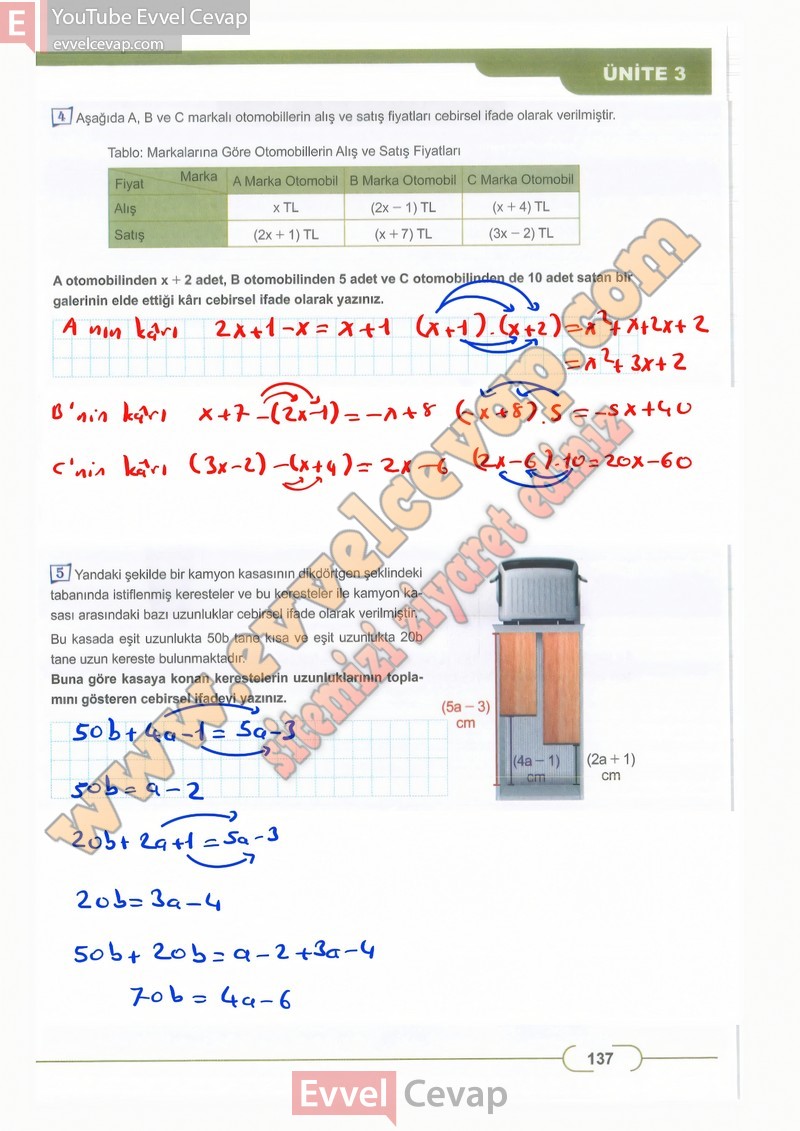 E YouTube Evvel Cevap
evvelcevap.com
ÜNİTE 3
4 Aşağıda A, B ve C markalı otomobillerin alış ve satış fiyatları cebirsel ifade olarak verilmiştir.
Tablo: Markalarına Göre Otomobillerin Alış ve Satış Fiyatları
Fiyat Marka A Marka Otomobil B Marka Otomobil C Marka Otomobil
Alış x TL (2x − 1) TL (x + 4) TL
Satış (2x + 1) TL (x + 7) TL (3x − 2) TL
A otomobilinden x + 2 adet, B otomobilinden 5 adet ve C otomobilinden de 10 adet satan bir
galerinin elde ettiği kârı cebirsel ifade olarak yazınız.
A nın kârı 2x+1−x = x+1 (x+1).(x+2)=x²+x+2x+2
=x²+3x+2
B'nin kârı x+7−(2x−1)=−x+8 (−x+8).5=−5x+40
C'nin kârı (3x−2)−(x+4)=2x−6 (2x−6).10=20x−60
5 Yandaki şekilde bir kamyon kasasının dikdörtgen şeklindeki
tabanında istiflenmiş keresteler ve bu keresteler ile kamyon ka-
sası arasındaki bazı uzunluklar cebirsel ifade olarak verilmiştir.
Bu kasada eşit uzunlukta 50b tane kısa ve eşit uzunlukta 20b
tane uzun kereste bulunmaktadır.
Buna göre kasaya konan kerestelerin uzunluklarının topla-
mını gösteren cebirsel ifadeyi yazınız.
(5a − 3)
cm
(4a − 1)
cm
(2a + 1)
cm
50b+4a−1=5a−3
50b=a−2
20b+2a+1=5a−3
20b=3a−4
50b+20b=a−2+3a−4
70b=4a−6
www.evvelcevap.com
sitemizi ziyaret ediniz
137
Evvel Cevap